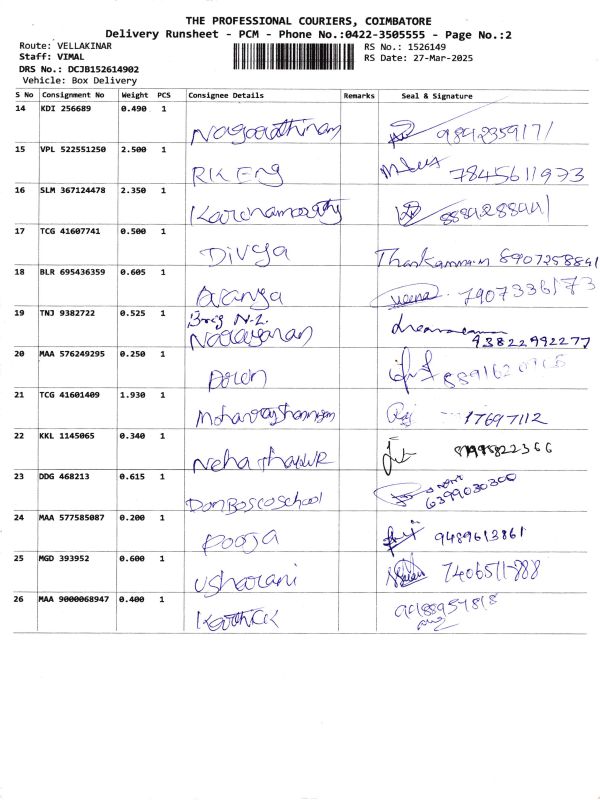 THE PROFESSIONAL COURIERS, COIMBATORE
Delivery Runsheet - PCM - Phone No.:0422-3505555 - Page No.:2
Route: VELLAKINAR RS No.: 1526149
Staff: VIMAL RS Date: 27-Mar-2025
DRS No.: DCJB152614902
Vehicle: Box Delivery
S No Consignment No Weight PCS Consignee Details Remarks Seal & Signature
14 KDI 256689 0.490 1
Nagarathinam 9894235917/
15 VPL 522551250 2.500 1
RK Eng 7845611973
16 SLM 367124478 2.350 1
17 TCG 41607741 0.500 1
Divya Thankamman 8907258891
18 BLR 695436359 0.605 1
veena 7907336173
19 TNJ 9382722 0.525 1
Narayanan 93822992277
20 MAA 576249295 0.250 1
21 TCG 41601409 1.930 1
Raj 17697112
22 KKL 1145065 0.340 1
Neha Thapur
23 DDG 468213 0.615 1
Don Bosco School 6399030300
24 MAA 577585087 0.200 1
Pooja 9489613861
25 MGD 393952 0.600 1
Usharani 7406511888
26 MAA 9000068947 0.400 1
Karthick